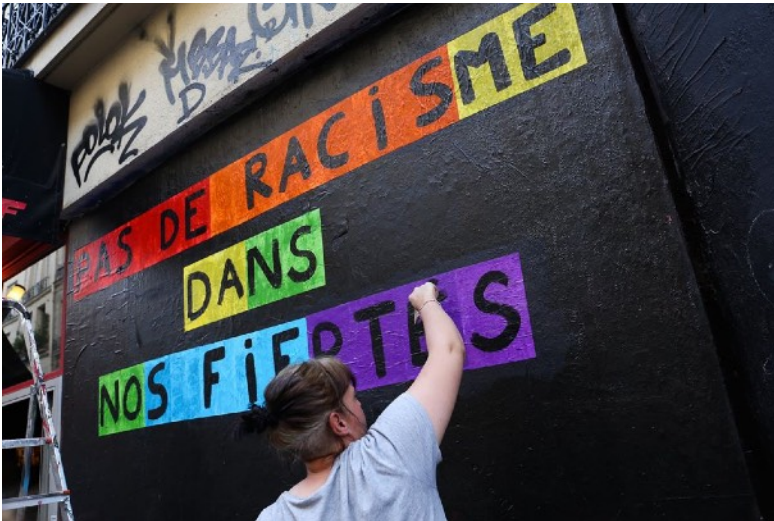 PAS DE RACISME
DANS
NOS FiERTÉS